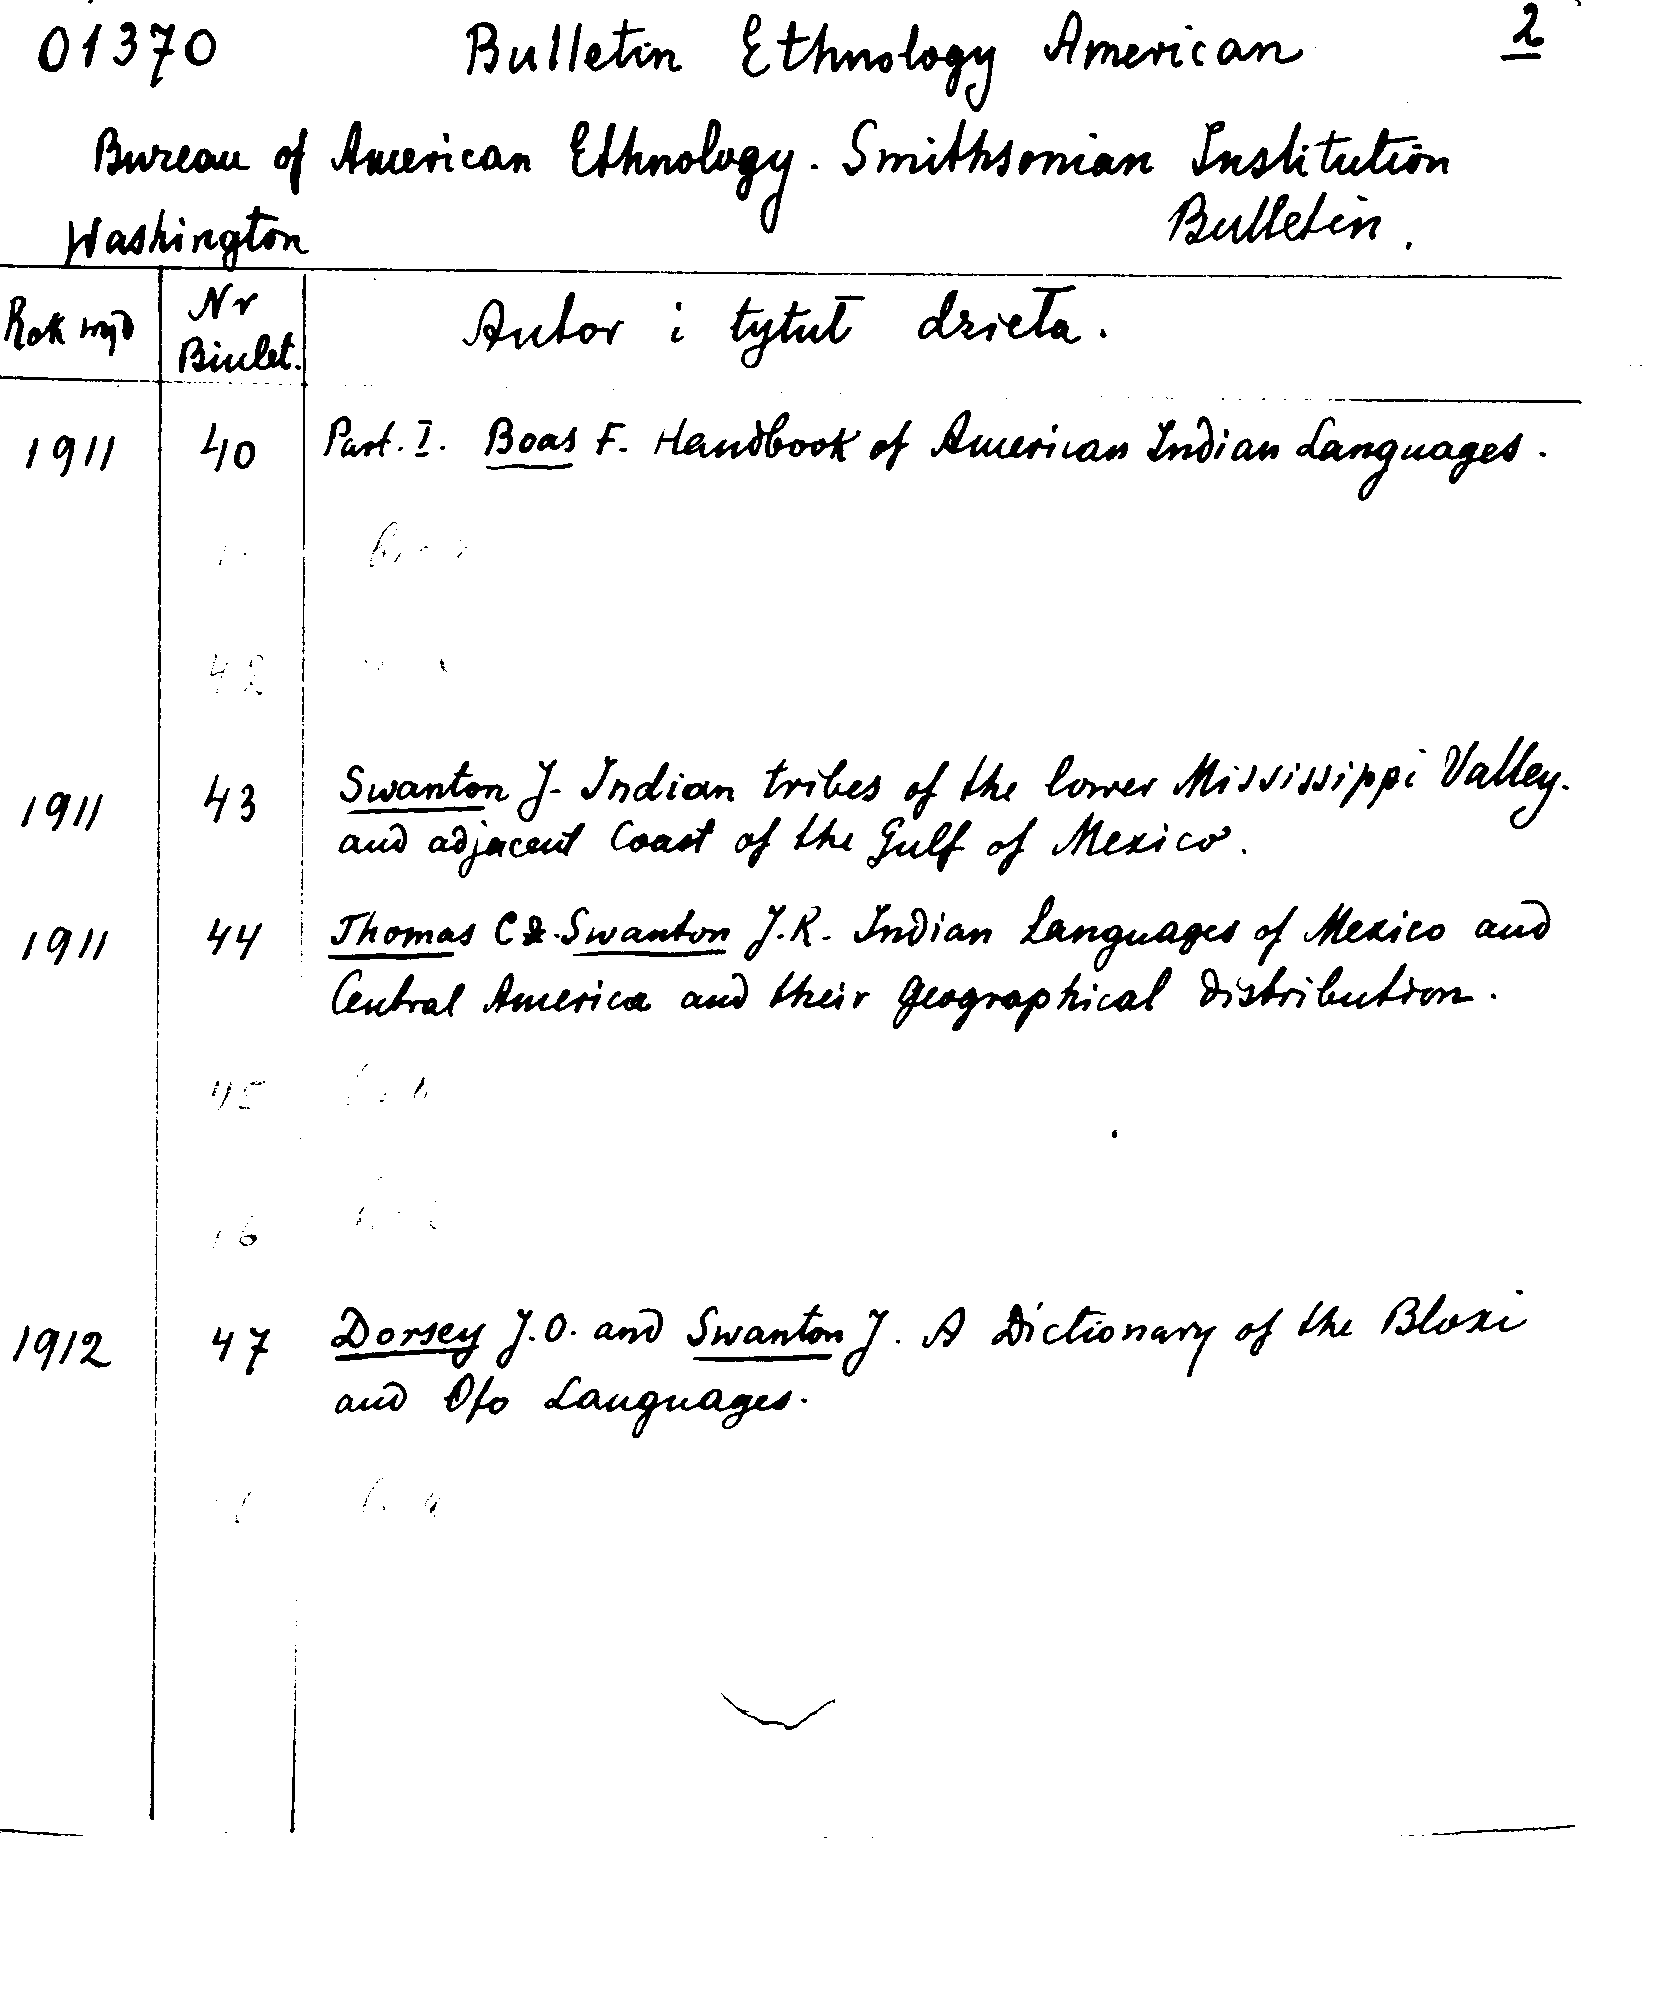 01370 Bulletin Ethnology American 2
Bureau of American Ethnology. Smithsonian Institution
Washington Bulletin.
Rok wyd Nr Biulet. Autor i tytuł dzieła.
1911 40 Part. I. Boas F. Handbook of American Indian Languages.
42
1911 43 Swanton J. Indian tribes of the lower Mississippi Valley.
and adjacent Coast of the Gulf of Mexico.
1911 44 Thomas C & Swanton J.R. Indian Languages of Mexico and
Central America and their geographical distribution.
45
1912 47 Dorsey J.O. and Swanton J. A Dictionary of the Bloxi
and Ofo Languages.